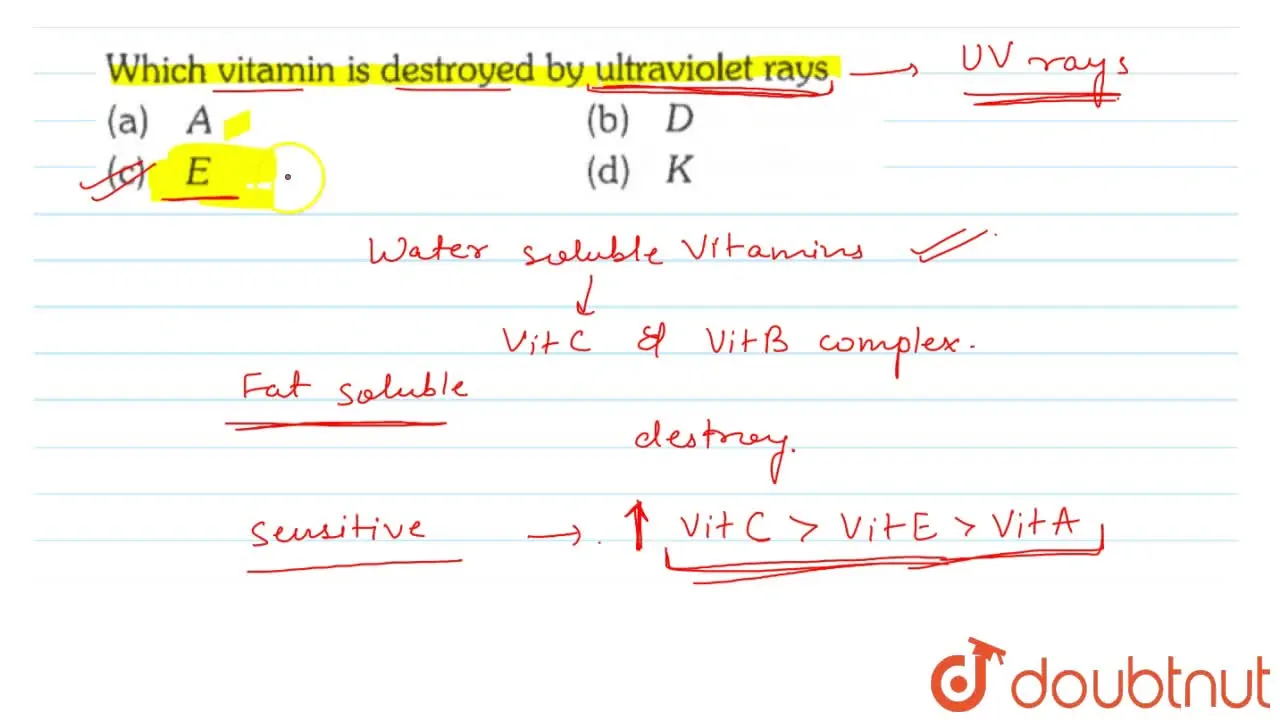 Which vitamin is destroyed by ultraviolet rays → UV rays
(a) A (b) D
(c) E (d) K
Water soluble Vitamins
↓
Vit C & Vit B complex.
Fat soluble
destroy.
Sensitive → . ↑ Vit C > Vit E > Vit A
doubtnut